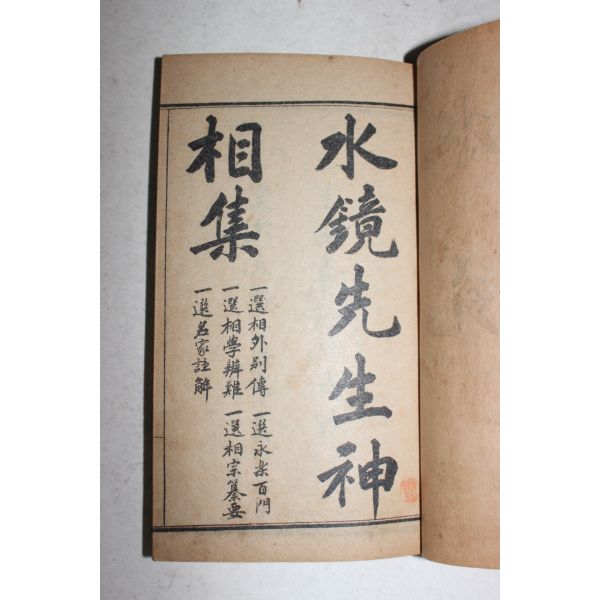 水鏡先生神
相集
一選相外別傳　一選永楽百門
一選相學辨難　一選相宗纂要
一選名家註解